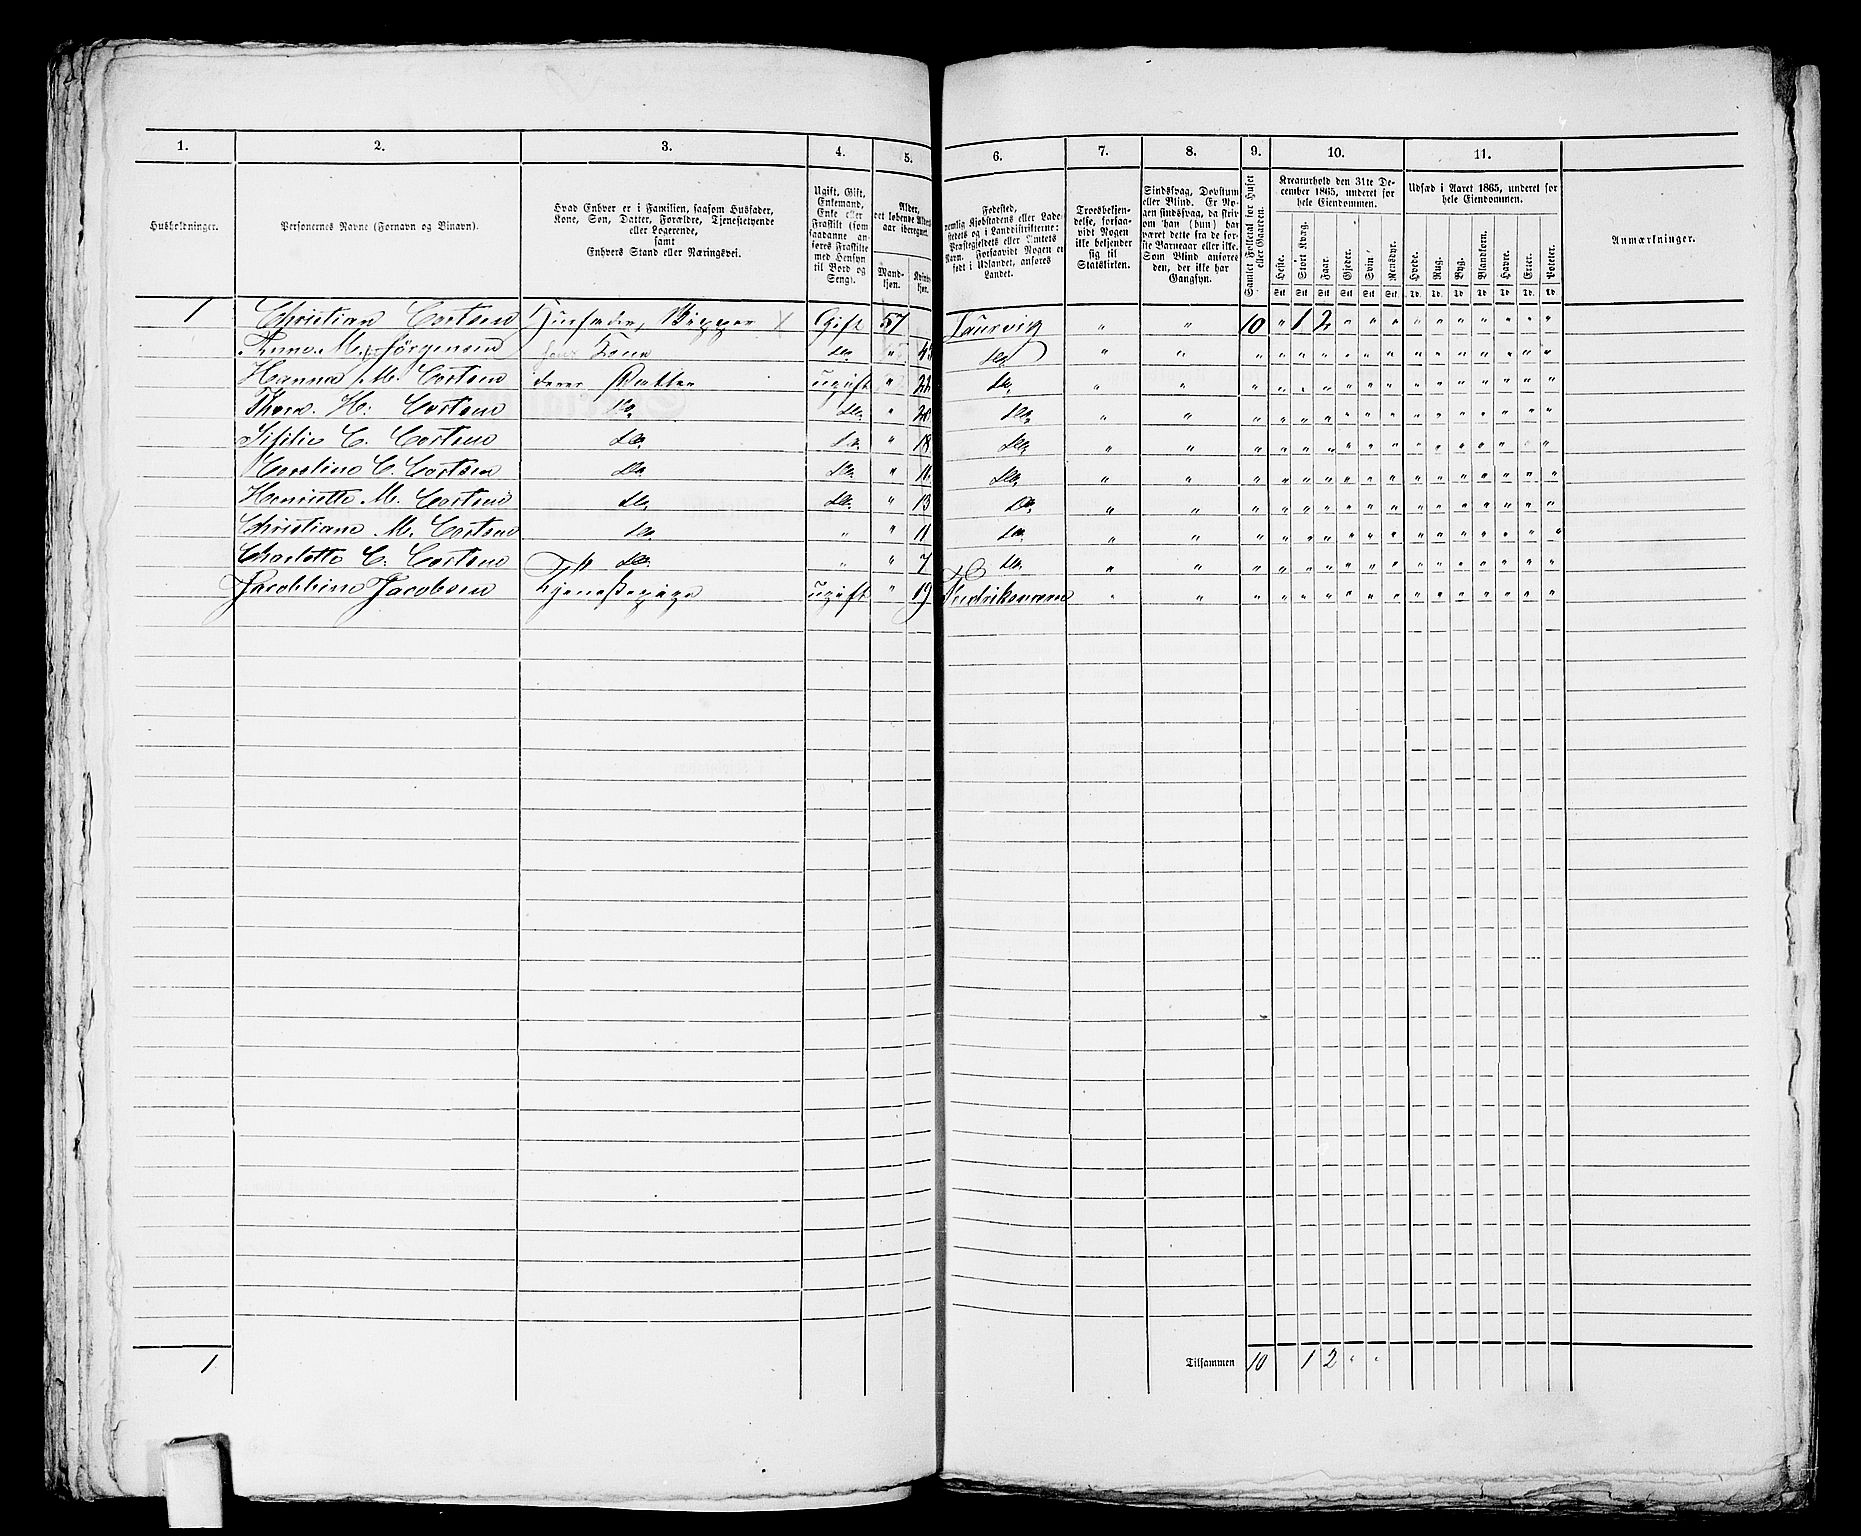 1. 2. 3. 4. 5. 6. 7. 8. 9. 10. 11.
Husholdninger.
Personernes Navne (Fornavn og Binavn).
Hvad Enhver er i Familien, saasom Husfader,
Kone, Søn, Datter, Forældre, Tjenestetyende
eller Logerende,
samt
Enhvers Stand eller Næringsvei.
Ugift, Gift,
Enkemand,
Enke eller
Fraskilt (som
saadanne an-
føres Fraskilte
med Hensyn
til Bord og
Seng).
Alder,
det løbende Alders-
aar iberegnet.
Mand-
kjøn.
Kvinde-
kjøn.
Fødested,
nemlig Kjøbstadens eller Lade-
stedets og i Landdistrikterne:
Præstegjeldets eller Amtets
Navn. Forsaavidt Nogen er
født i Udlandet, anføres
Landet.
Troesbekjen-
delse, forsaa-
vidt Nogen
ikke bekjender
sig til
Statskirken.
Sindssvag, Døvstum
eller Blind. Er No-
gen sindssvag, da skri-
ves om han (hun) har
været dette fra de før-
ste Barneaar eller ikke.
Som Blind anføres
den, der ikke har
Gangsyn.
Samlet Folketal for Huset
eller Gaarden.
Kreaturhold den 31te De-
cember 1865, underet for
hele Eiendommen.
Heste. Stort Kvæg. Faar. Gjeder. Svin. Rensdyr.
Stk Stk Stk Stk Stk Stk
Udsæd i Aaret 1865, underet for
hele Eiendommen.
Hvede. Rug. Byg. Blandkorn. Havre. Erter. Poteter.
Td. Td. Td. Td. Td. Td. Td.
Anmærkninger.
1 Christian Cortsen Huusfader, Skipper X Gift 57 Laurvig " " 10 " 1 2 " " " " " " " " " "
Anne M. Jørgensen hans Kone do. " do. " " " " " " " " " " " " " " " "
Hanna M. Cortsen deres Datter ugift " 22 do. " " " " " " " " " " " " " " " "
Thora H. Cortsen do. do. " 20 do. " " " " " " " " " " " " " " " "
C. Cortsen do. do. " 18 do. " " " " " " " " " " " " " " " "
Caroline C. Cortsen do. do. " do. " " " " " " " " " " " " " " " "
Henriette M. Cortsen do. do. " 13 do. " " " " " " " " " " " " " " " "
Christiane M. Cortsen do. " " 11 do. " " " " " " " " " " " " " " " "
Charlotte C. Cortsen do. " " 7 do. " " " " " " " " " " " " " " " "
Jacobbine Jacobsen Tjenestepige ugift " 19 Fredriksværn " " " " " " " " " " " " " " " "
1 Tilsammen 10 1 2 " "